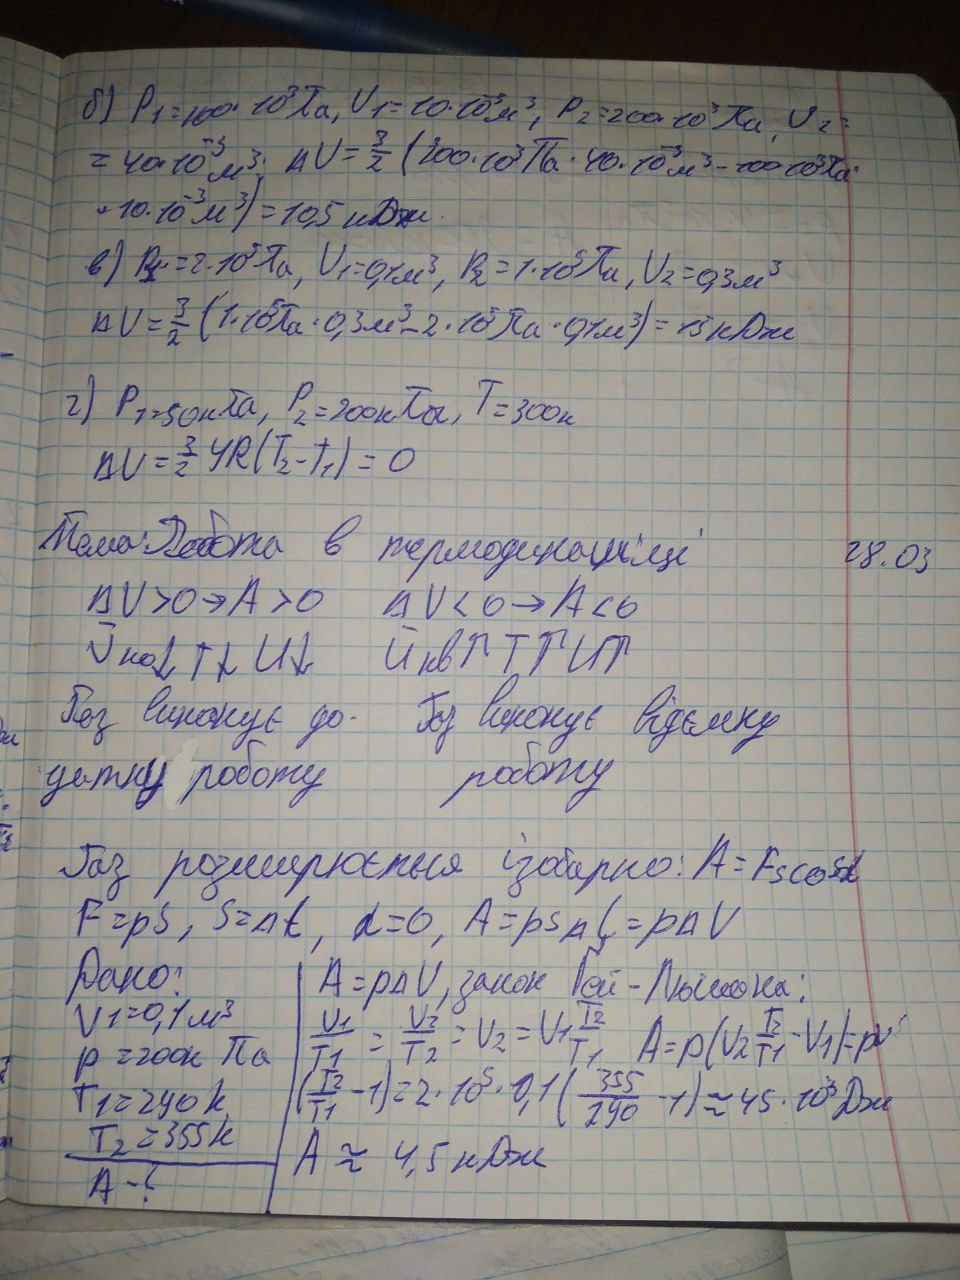 б) P₁=100·10³Па, V₁=10·10⁻³м³, P₂=200·10³Па, V₂=
=40·10⁻³м³. ΔU=3/2(200·10³Па·40·10⁻³м³-100·10³Па·
·10·10⁻³м³)=10,5 кДж.
в) P₁=2·10⁵Па, V₁=0,1м³, P₂=1·10⁵Па, V₂=0,3м³
ΔU=3/2(1·10⁵Па·0,3м³-2·10⁵Па·0,1м³)=15кДж
г) P₁=50кПа, P₂=200кПа, T=300к
ΔU=3/2 νR(T₂-T₁)=0
Тема: Робота в термодинаміці 28.03
ΔV>0→A>0 ΔV<0→A<0
T↓ U↓ T↑ U↑
Газ виконує до- Газ виконує відємну
датну роботу роботу
Газ розширюється ізобарно: A=Fscosα
F=pS, S=Δl, α=0, A=pSΔl=pΔV
Дано: A=pΔV, закон Гей-Люссака:
V₁=0,1м³ V₁/T₁=V₂/T₂=V₂=V₁T₂/T₁ A=p(V₂T₂/T₁-V₁)=pV
p=200к Па
T₁=290к (T₂/T₁-1)=2·10⁵·0,1(355/290-1)≈45·10³Дж
T₂=355к A≈4,5кДж
A-?